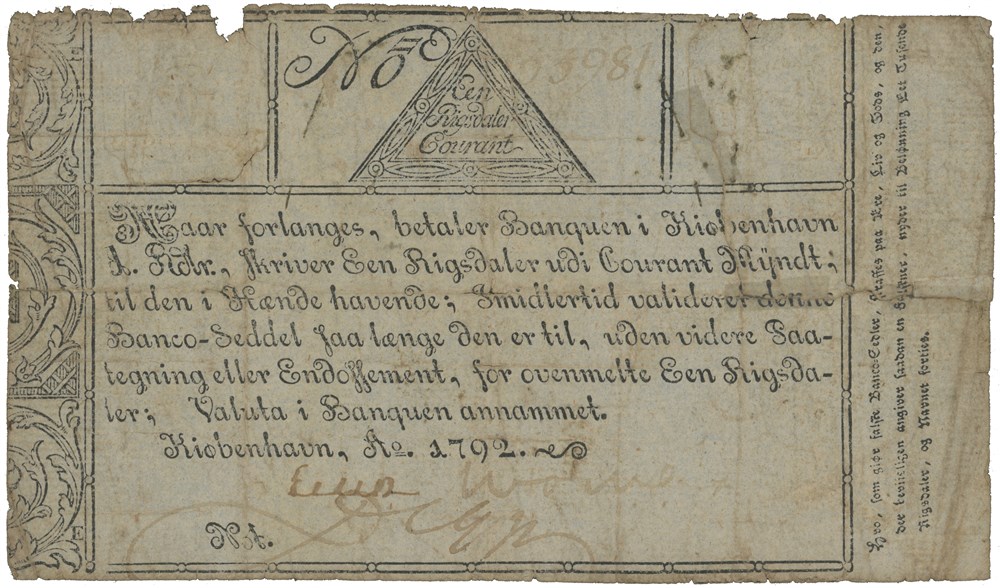 No
15981
Een
Rigsdaler
Courant
Naar forlanges, betaler Banquen i Kiøbenhavn
1. Rdlr., skriver Een Rigsdaler udi Courant Mÿndt;
til den i Hænde havende; Imidlertid validerer denne
Banco-Seddel saa længe den er til, uden videre Paa-
tegning eller Endossement, for ovenmelte Een Rigsda-
ler; Valuta i Banquen annammet.
Kiøbenhavn, Ao. 1792.
Not.
Hvo, som giør falske Banco-Sedler, straffes paa Ære, Liv og Gods, og den
der beviisligen angiver saadan en Falskner, nyder til Belønning Eet Tusende
Rigsdaler, og Navnet forties.